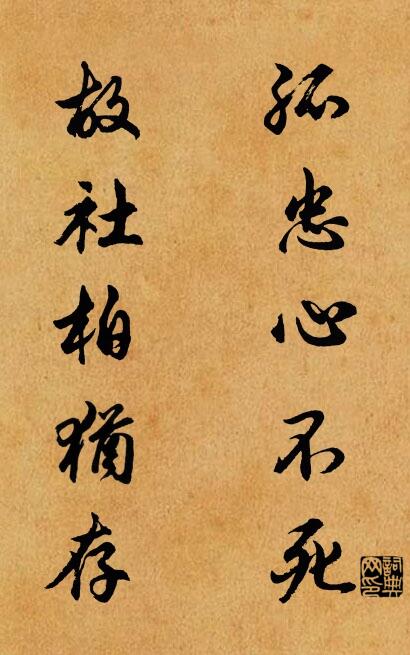 孤忠心不死
故社柏犹存
詞典网印